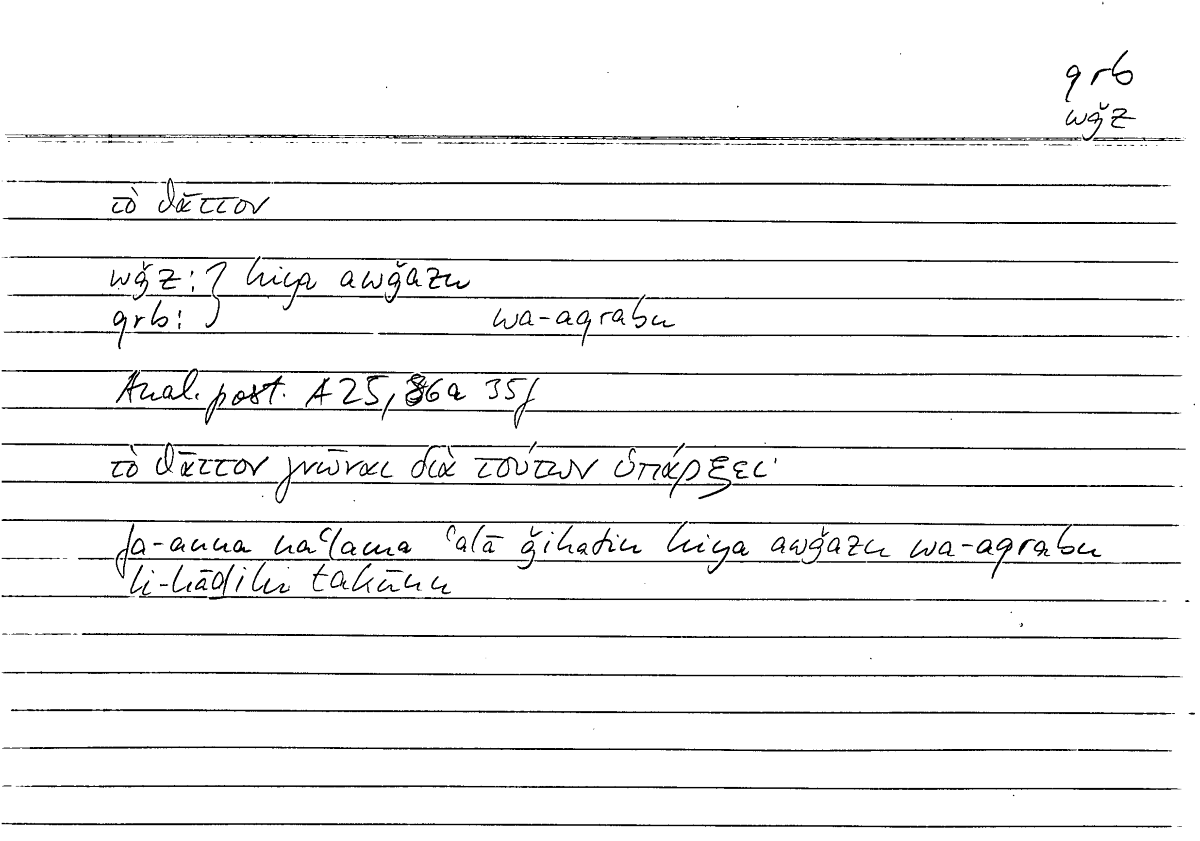 qrb
wǧz
τὸ θᾶττον
wǧz: } hiya awǧazu
qrb: } wa-aqrabu
Anal. post. A 25, 86a 35f
τὸ θᾶττον γνῶναι διὰ τούτων ὑπάρξει·
fa-anna naʿlama ʿalā ǧihatin hiya awǧazu wa-aqrabu
li-hāḏihi takūnu